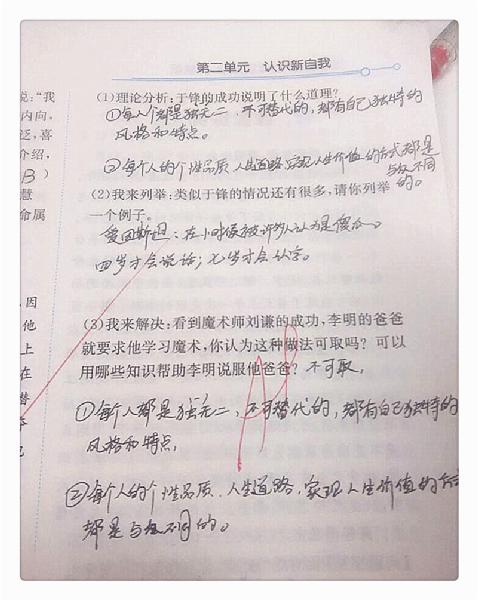 第二单元 认识新自我
说:"我
内向,
泛,喜
介绍,
B)
慧
命属
因
他
上
在
替
(1)理论分析:于锋的成功说明了什么道理?
①每个人都是独无二、不可替代的,都有自己独特的
风格和特点。
②每个人的个性品质、人生道路、实现人生价值的方式都是
与众不同
的。
(2)我来列举:类似于锋的情况还有很多,请你列举
一个例子。
爱因斯坦:在小时候被许多人认为是傻瓜。
四岁才会说话;七岁才会认字。
(3)我来解决:看到魔术师刘谦的成功,李明的爸爸
就要求他学习魔术,你认为这种做法可取吗?可以
用哪些知识帮助李明说服他爸爸?不可取,
①每个人都是独无二、不可替代的,都有自己独特的
风格和特点,
②每个人的个性品质、人生道路,实现人生价值的方式
都是与众不同的。